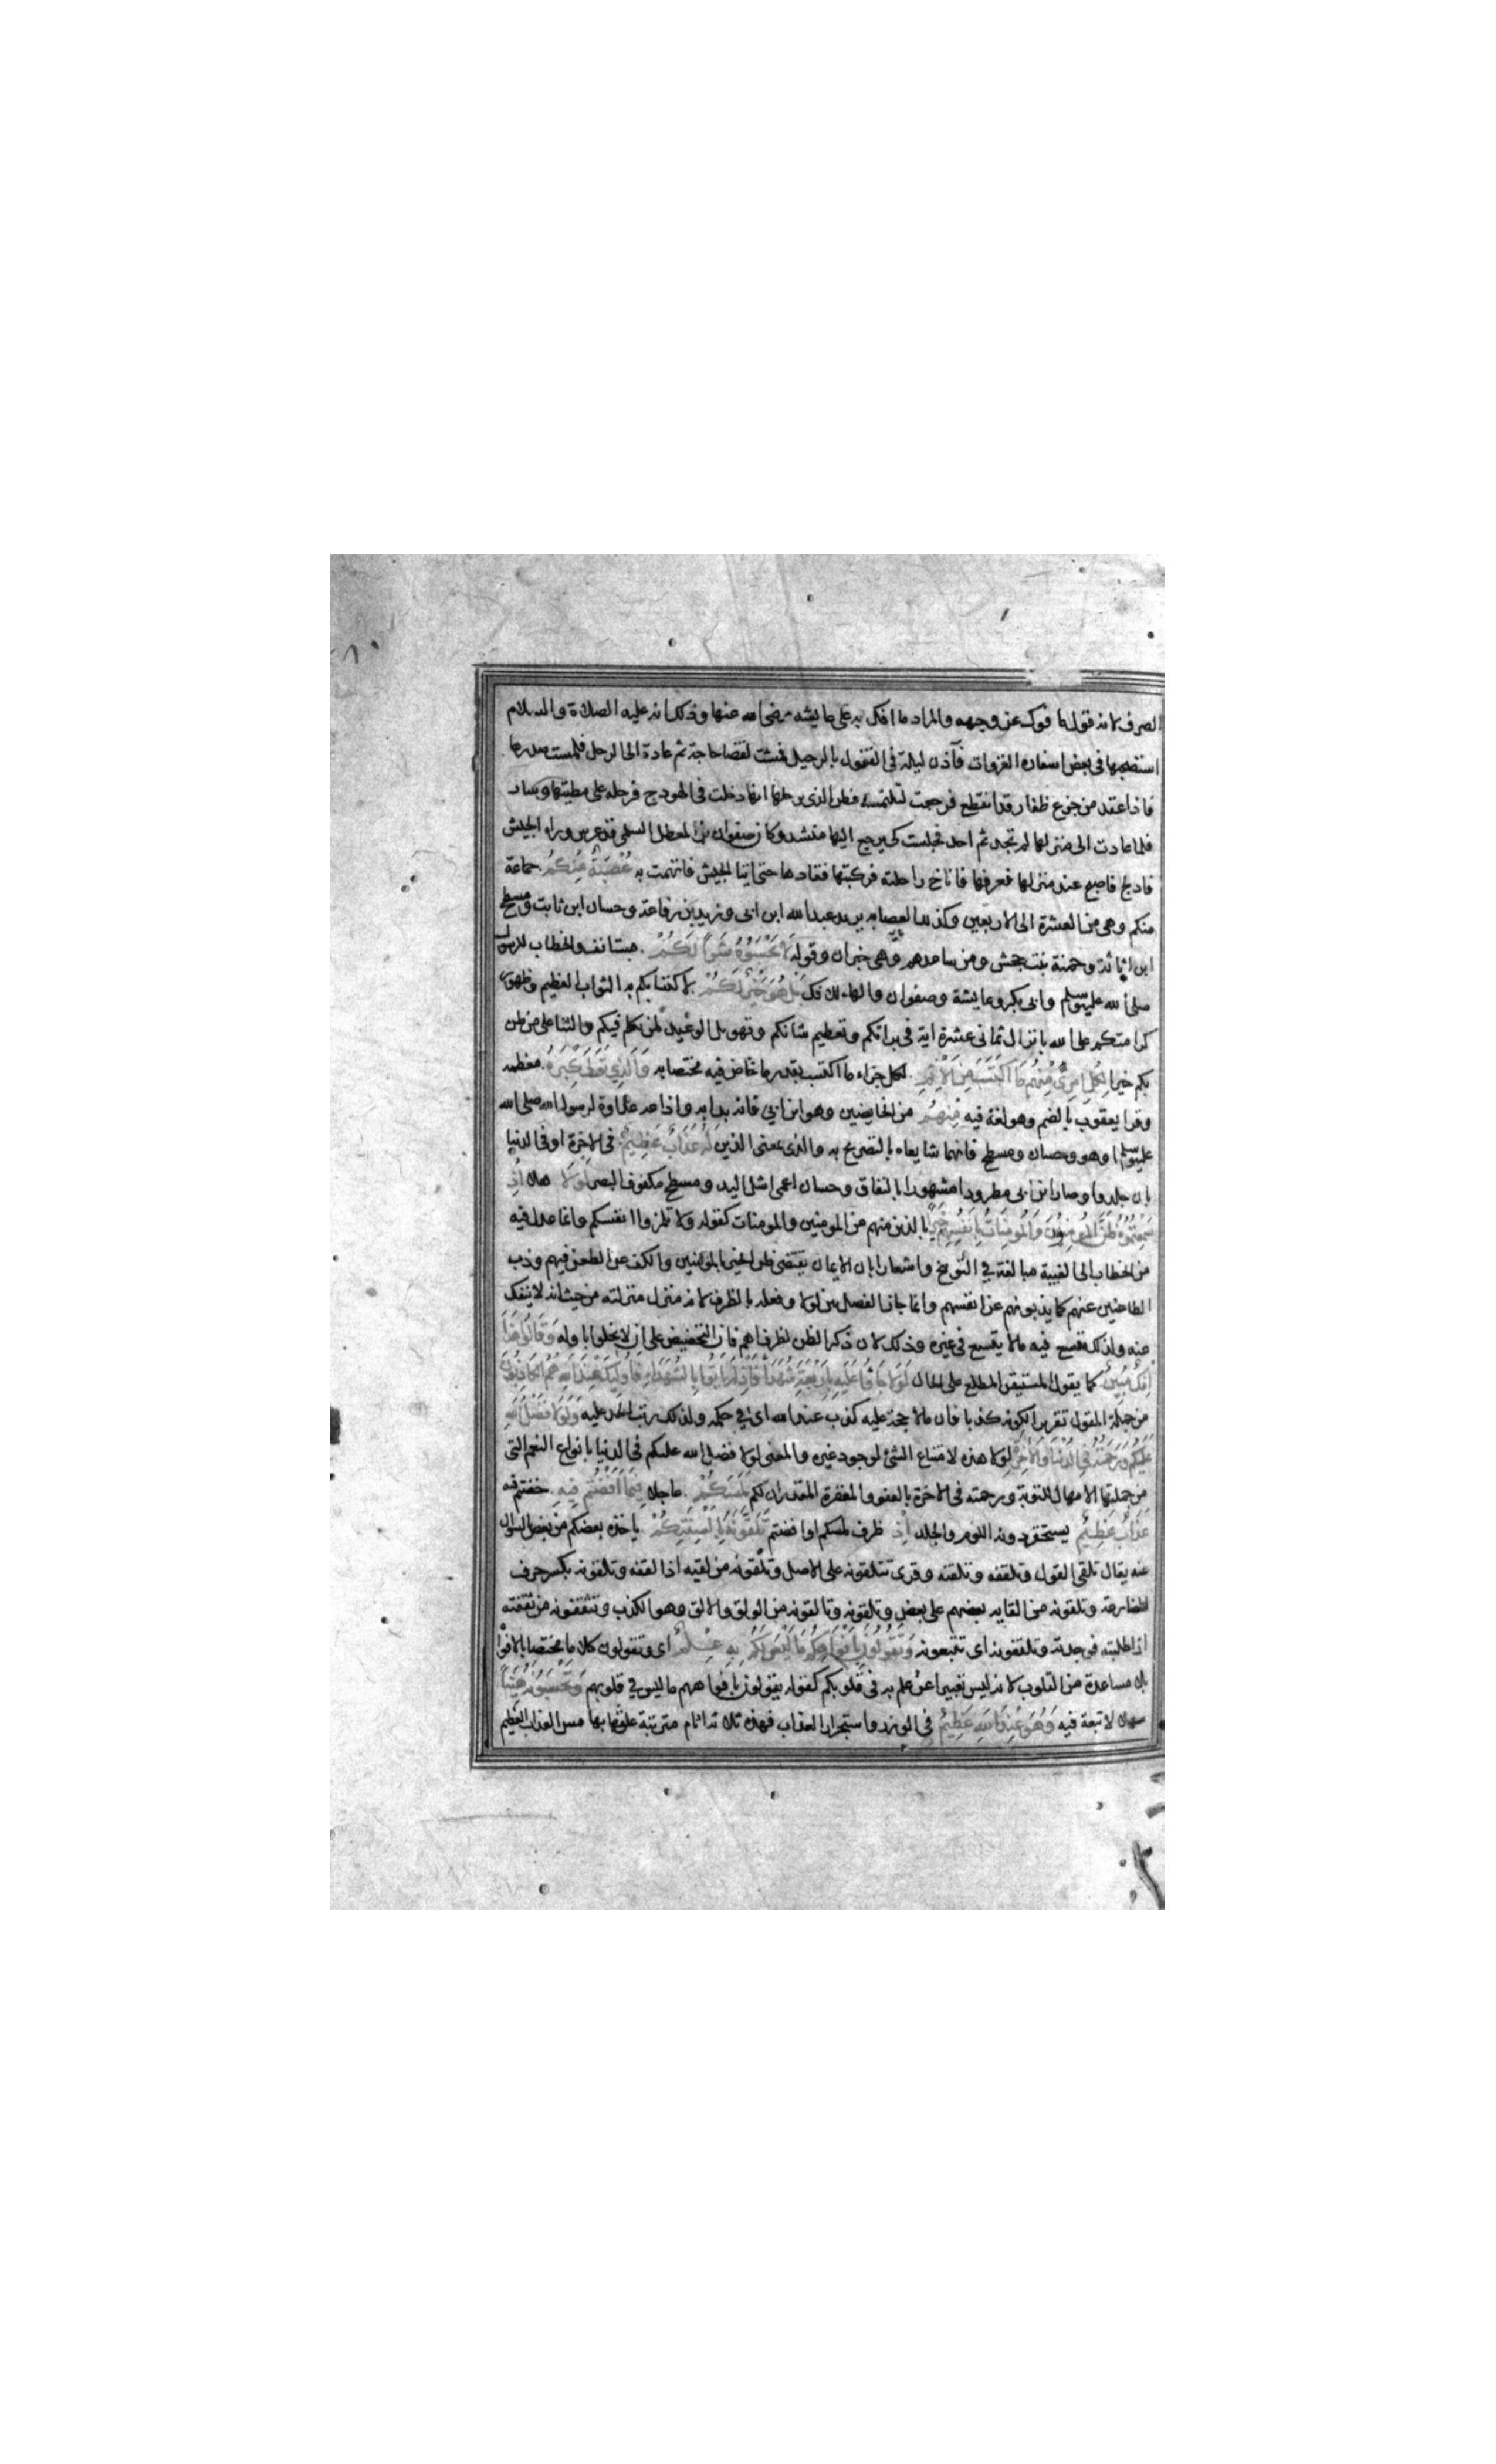 الصرف لانه قول مافوك عن وجهه والمراد ما افك به على عايشه رضى الله عنها وذلك انه عليه الصلاة والسلام
استصحبها فى بعض اسفاره الغزوات فآذن ليلة فى القفول بالرحيل فمشت لقضا حاجة ثم عادة الى الرحل فلمست صدرها
فاذا عقد من جزع ظفار قد انقطع فرجعت لتلتمسه فظن الذى يرحلها انها دخلت فى الهودج فرحله على مطيتها وسار
فلما عادت الى منزلها لم تجد ثم احد فجلست كى يرجع اليها منشد وكان صفوان بن المعطل السلمى قد عرس وراه الجيش
فادلج فاصبح عند منزلها فعرفها فاناخ راحلته فركبتها فقادها حتى اتيا الجيش فاتهمت به عُصْبَةٌ مِنكُمْ جماعة
منكم وهى من العشرة الى الاربعين وكذلك العصابه يريد عبدالله ابن ابى وزيد بن رفاعة وحسان ابن ثابت ومسطح
ابن اثاثة وحمنة بنت جحش ومن ساعدهم وهى خبر ان وقوله لاَ تَحْسَبُوهُ شَرًّا لَكُمْ مستانف والخطاب للرسول
صلى الله عليه وسلم وابى بكر وعايشة وصفوان والهاء للافك بَلْ هُوَ خَيْرٌ لَكُمْ لاكتسابكم به الثواب العظيم وظهور
كرامتكم على الله بانزال ثمانى عشرة اية فى براتكم وتعظيم شانكم وتهويل الوعيد لمن تكلم فيكم والثنا على من ظن
بكم خيرا لِكُلِّ امْرِئٍ مِنْهُم مَا اكْتَسَبَ مِنَ الاِثْمِ لكل جزاء ما اكتسب بقدر ما خاض فيه مختصا به وَالَّذِي تَوَلَّى كِبْرَهُ معظمه
وقرا يعقوب بالضم وهو لغة فيه مِنْهُمْ من الخايضين وهو ابن ابى فانه بدا به واذاعه عداوة لرسول الله صلى الله
عليه وسلم او هو وحسان ومسطح فانهما شايعاه بالتصريح به والذى بمعنى الذين لَهُ عَذَابٌ عَظِيمٌ فى الاخرة او فى الدنيا
بان جلدوا وصار ابن ابى مطرودا مشهورا بالنفاق وحسان اعمى اشل اليد ومسطح مكفوف البصر لَوْلاَ هلا إِذْ
سَمِعْتُمُوهُ ظَنَّ الْمُومِنُونَ وَالْمُومِنَاتُ بِأَنْفُسِهِمْ خَيْرًا بالذين منهم من المومنين والمومنات كقوله ولا تلمزوا انفسكم وانما عدل فيه
من الخطاب الى الغيبة مبالغة في التوبيخ واشعارا بان الايمان يقتضى ظن الخير بالمومنين والكف عن الطعن فيهم وذب
الطاعنين عنهم كما يذبونهم عن انفسهم وانما جاز الفصل بين لولا وفعله بالظرف لانه منزل منزلته من حيث انه لا ينفك
عنه ولذلك تتسع فيه مالا يتسع فى غيره وذلك لان ذكر الظن لظرف اهم فان التحضيض على ان لا يخلوا باوله وَقَالُوا هَذَا
إِفْكٌ مُبِينٌ كما يقول المستيقن المطلع على الحال لَوْلاَ جَاؤُا عَلَيْهِ بِأَرْبَعَةِ شُهَدَاءَ فَإِذْ لَمْ يَاتُوا بِالشُّهَدَاءِ فَأُولَئِكَ عِنْدَ اللهِ هُمُ الْكَاذِبُونَ
من جملة المقول تقريرا لكونه كذبا فان مالا حجة عليه كذب عند الله اى في حكمه ولذلك رتب الحد عليه وَلَوْلاَ فَضْلُ اللهِ
عَلَيْكُمْ وَرَحْمَتُهُ فِى الدُّنْيَا وَالاَخِرَةِ لولا هذه لامتناع الشئ لوجود غيره والمعنى لولا فضل الله عليكم فى الدنيا بانواع النعم التى
من جملتها الامهال للتوبة ورحمته فى الاخرة بالعفو والمغفرة المقدران لكم لَمَسَّكُمْ عاجلا فِيمَا أَفَضْتُمْ فِيهِ خضتم فيه
عَذَابٌ عَظِيمٌ يستحقر دونه اللوم والجلد إِذْ ظرف لمسكم او افضتم تَلَقَّوْنَهُ بِأَلْسِنَتِكُمْ ياخذه بعضكم من بعض بالسوال
عنه يقال تلقى القول وتلقفه وتلقنه وقرى تتلقونه على الاصل وتلقونه من لقيه اذا لقفه وتلقونه بكسر حرف
المضارعة وتلقونه من القايه بعضهم على بعض وتلقونه وتالقونه من الولق والالق وهو الكذب وتثقفونه من ثقفته
اذا طلبته فوجدته وتلقفونه اى تتبعونه وَتَقُولُونَ بِأَفْوَاهِكُمْ مَا لَيْسَ لَكُمْ بِهِ عِلْمٌ اى وتقولون كلاما مختصا بالافواه
بلا مساعدة من القلوب لانه ليس تعبيرا عن علم به فى قلوبكم كقوله يقولون بافواههم ما ليس في قلوبهم وَتَحْسَبُونَهُ هَيِّنًا
سهلا لا تبعة فيه وَهُوَ عِنْدَ اللهِ عَظِيمٌ فى الوزر واستجرار العذاب فهذه ثلاثة اثام مترتبة علق بها مس العذاب العظيم